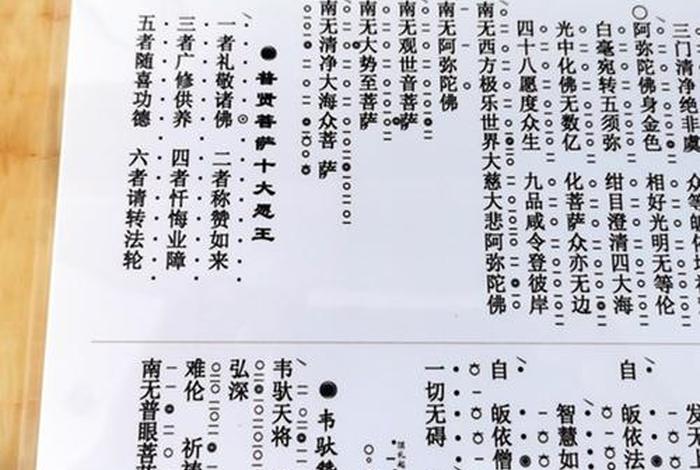 三门清净绝非虞
阿弥陀佛身金色 相好光明无等伦
白毫宛转五须弥 绀目澄清四大海
光中化佛无数亿 化菩萨众亦无边
四十八愿度众生 九品咸令登彼岸
南无西方极乐世界大慈大悲阿弥陀佛
南无阿弥陀佛
南无观世音菩萨
南无大势至菩萨
南无清净大海众菩萨
普贤菩萨十大愿王
一者礼敬诸佛 二者称赞如来
三者广修供养 四者忏悔业障
五者随喜功德 六者请转法轮
发无
自 皈依法
智慧如
自 皈依僧
一切无碍
韦驮
韦驮天将
弘深
难伦 祈祷
南无普眼菩